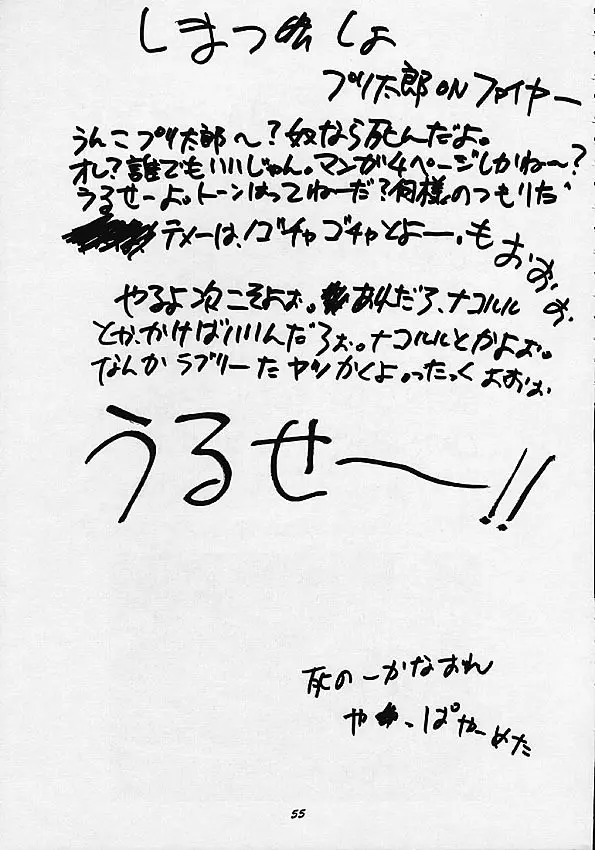 しまつ しょ
プリ太郎 ON ファイヤー
うんこプリ太郎〜?奴なら死んだよ。
オレ?誰でもいいじゃん。マンガ4ページしかね〜?
うるせーよ。トーンはってねーだ?何様のつもりだ
テメーは、ゴチャゴチャとよー、もおおおお、
やるよ次こそよぉ。あれだろ、ナコルル
とか、かけばいいんだろぉ。ナコルルとかよぉ。
なんかラブリーなヤツかくよ。ったくよおぉぉ
うるせ〜!!
死のーかなおれ
や っぱやーめた
55